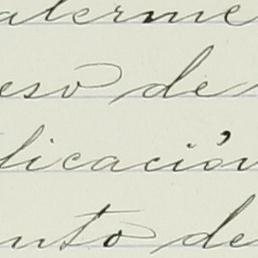 alerme
eso de
licación
nto de